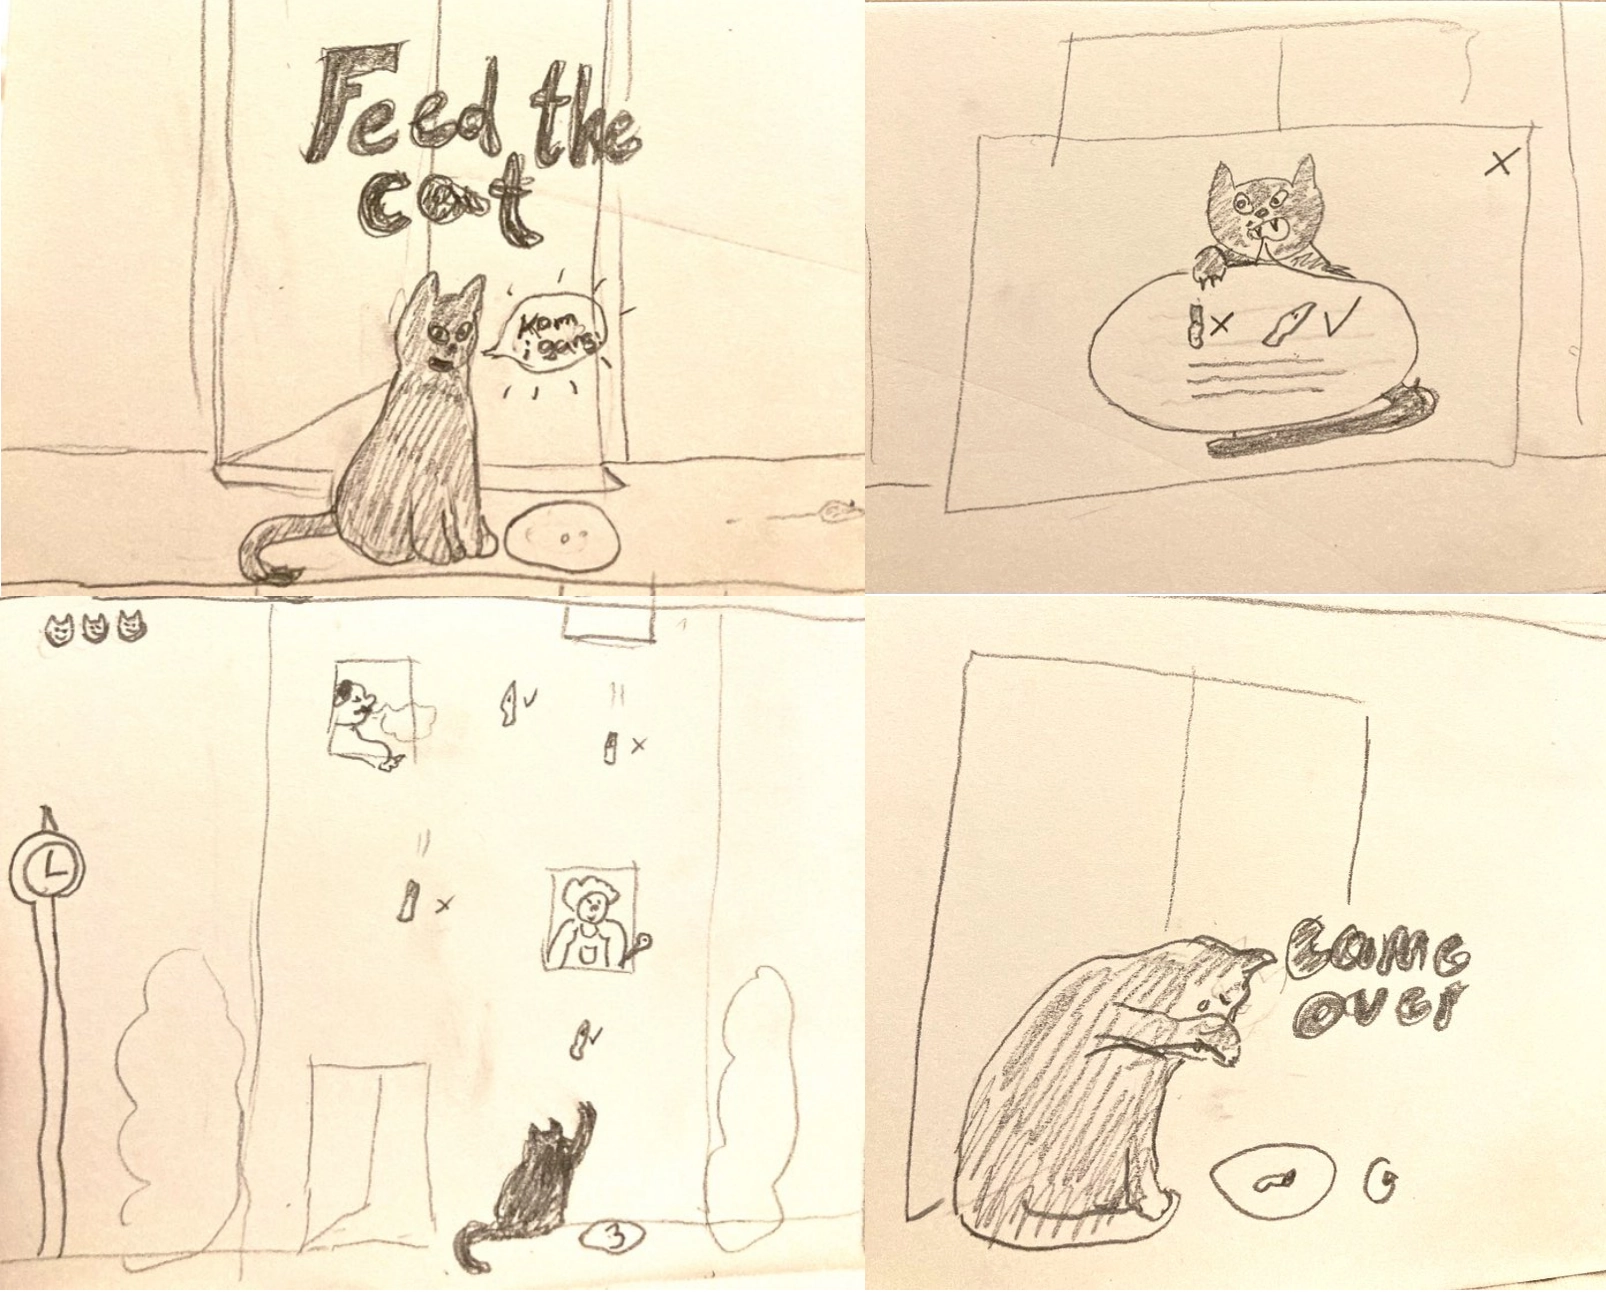 Feed the
cat
Kom
igang!
X
X
✓
✓
X
X
✓
3
Game
over